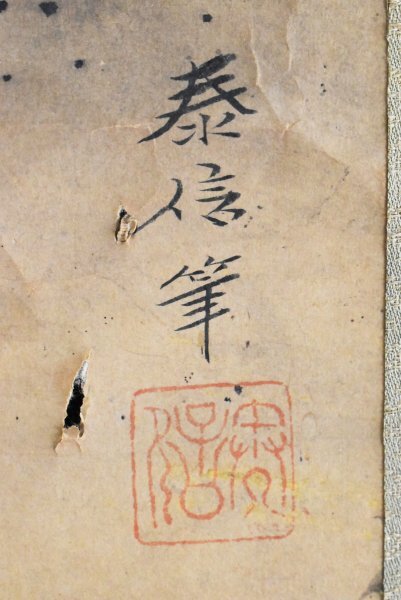 泰信筆